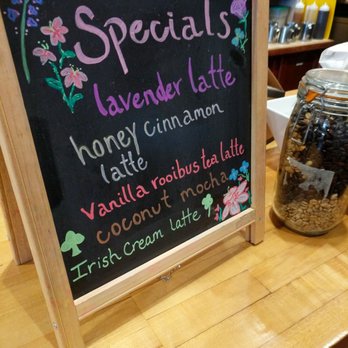 Specials
lavender latte
honey cinnamon
latte
vanilla rooibus tea latte
coconut mocha
Irish Cream latte